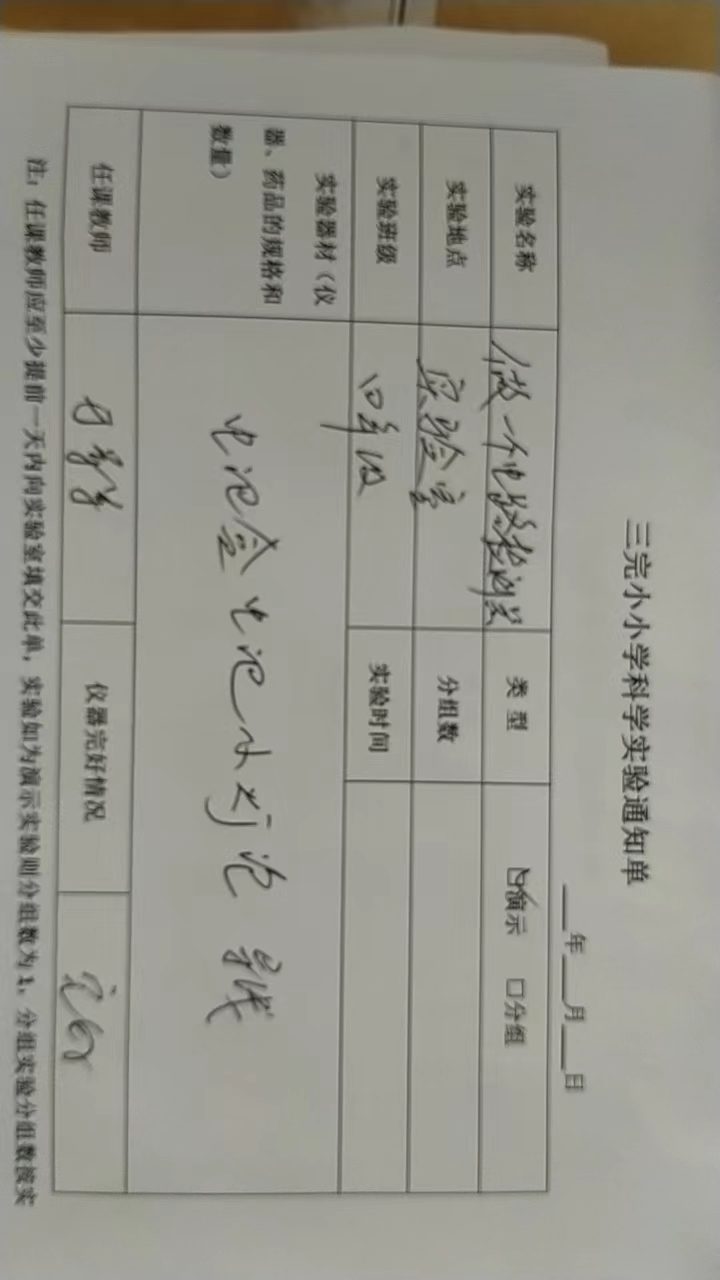 三完小小学科学实验通知单
__年__月__日
实验名称 做一个电路检测器 类型 ☑演示 □分组
实验地点 实验室 分组数
实验班级 四年级 实验时间
实验器材（仪
器、药品的规格和
数量）
电池盒 电池 小灯泡 导线
任课教师 仪器完好情况 完好
注：任课教师应至少提前一天内向实验室填交此单，实验如为演示实验则分组数为1，分组实验分组数按实